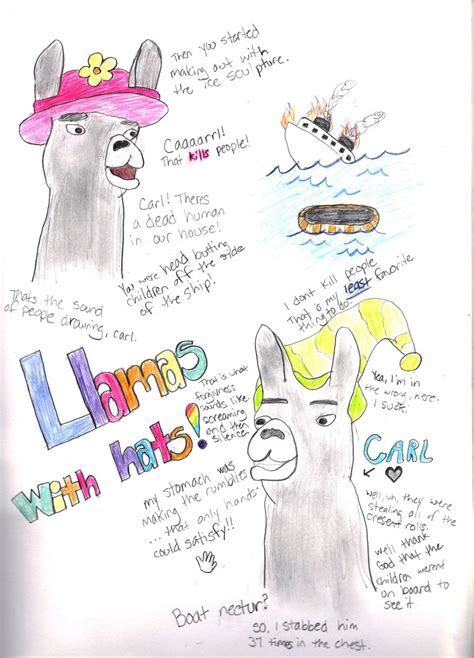 Then you started
making out with
the ice sculpture.
Caaaarrl!
That kills people!
Carl! Theres
a dead human
in our house!
You were head butting
children off the side
of the ship!
Thats the sound
of people drowning, carl.
I dont kill people
That is my least favorite
thing to do.
Llamas
with hats!
That is what
forgivness
sounds like-
screaming
and then
silence.
Yea, I'm in
the wrong, here.
I suck.
CARL
my stomach was
making the rumblies
...that only hands
could satisfy!!
well, uh, they were
stealing all of the
present rolls.
well thank
God that the
children werent
on board to
see it
Boat nectur?
So, I stabbed him
37 times in the chest.